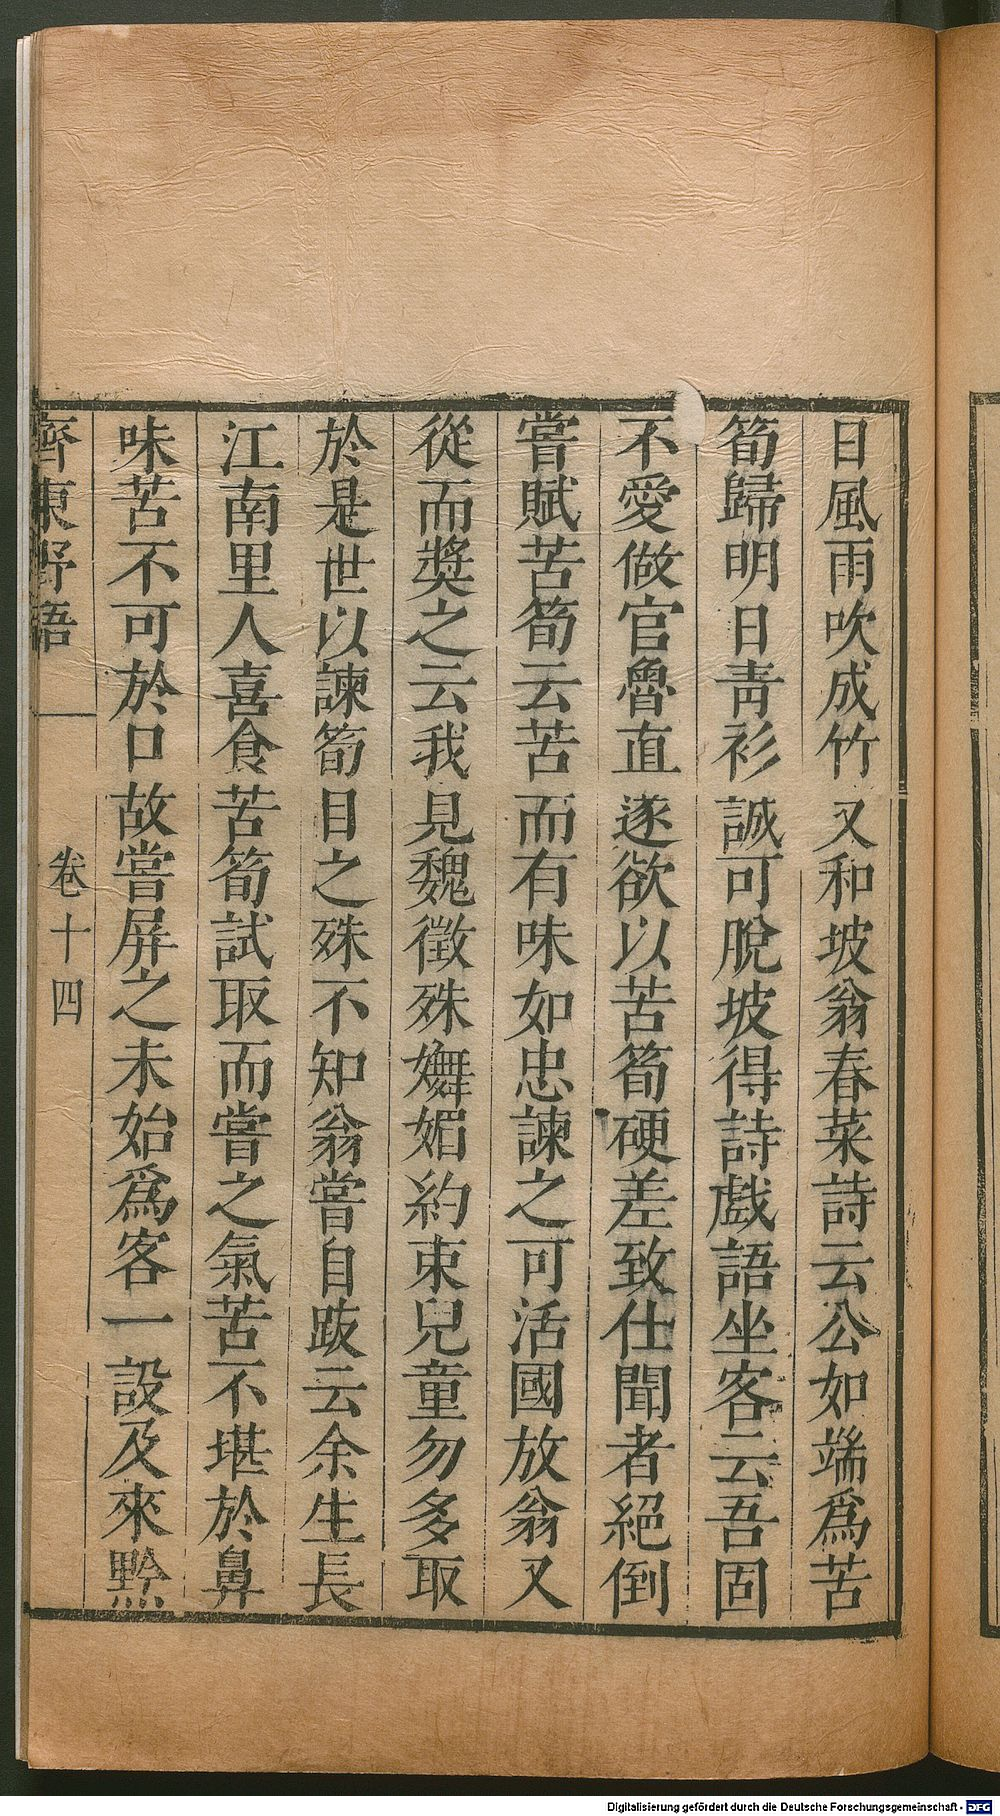 日風雨吹成竹又和坡翁春菜詩云公如端爲苦
筍歸明日靑衫誠可脫坡得詩戲語坐客云吾固
不愛做官魯直遂欲以苦筍硬差致仕聞者絕倒
嘗賦苦筍云苦而有味如忠諫之可活國放翁又
從而奬之云我見魏徵殊嫵媚約束兒童勿多取
於是世以諫筍目之殊不知翁嘗自跋云余生長
江南里人喜食苦筍試取而嘗之氣苦不堪於鼻
味苦不可於口故嘗屏之未始爲客一設及來黔
齊東野語 卷十四
Digitalisierung gefördert durch die Deutsche Forschungsgemeinschaft - DFG